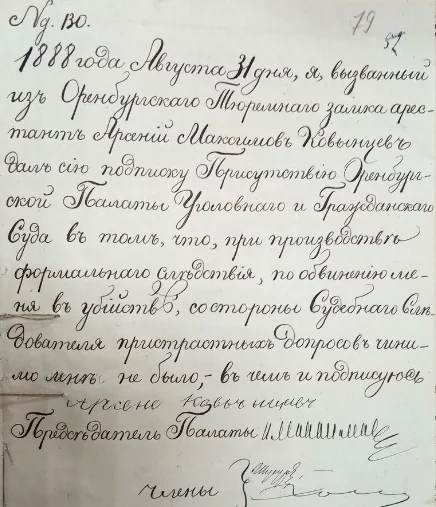 №. 130.
79
52
1888 года Августа 31 дня, я, вызванный
изъ Оренбургскаго Тюремнаго замка арес-
тантъ Арсенiй Максимовъ Ковынцевъ
далъ сiю подписку Присутствiю Оренбург-
ской Палаты Уголовнаго и Гражданскаго
Суда въ томъ, что, при производствѣ
формальнаго слѣдствiя, по обвиненiю ме-
ня въ убiйствѣ, со стороны Судебнаго Слѣ-
дователя пристрастныхъ допросовъ чини-
мо мнѣ не было, - въ чемъ и подписуюсь
Арсене
Предсѣдатель Палаты
члены